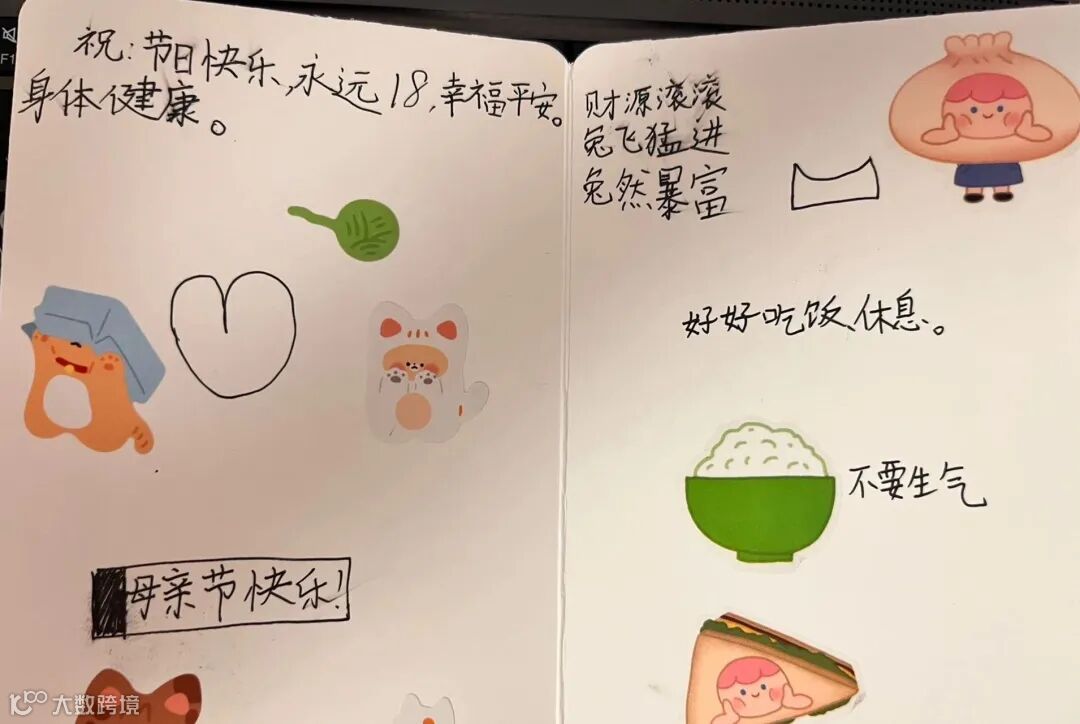 祝:节日快乐,永远18,幸福平安。
身体健康。
母亲节快乐!
财源滚滚
兔飞猛进
兔然暴富
好好吃饭、休息。
不要生气
F1
大数跨境